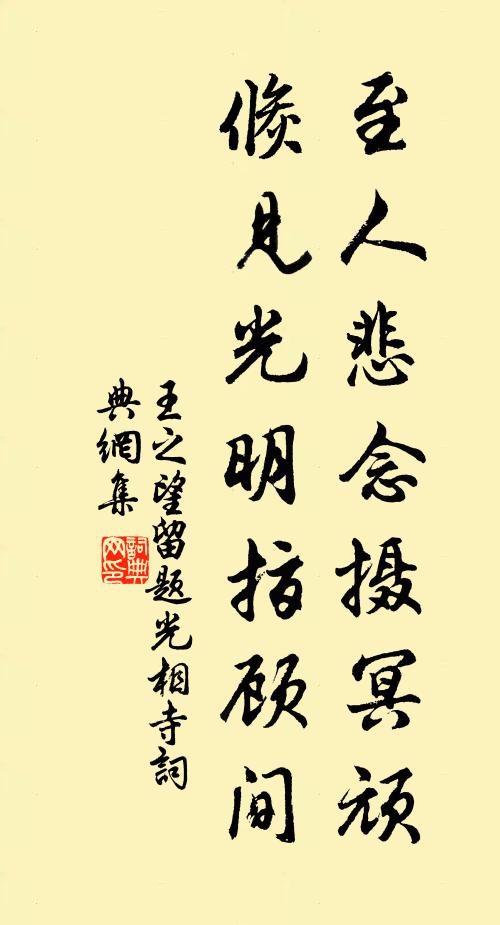 至人悲念摄冥顽
倏见光明指顾间
王之望留题光相寺詞
典網集
詞典
网印